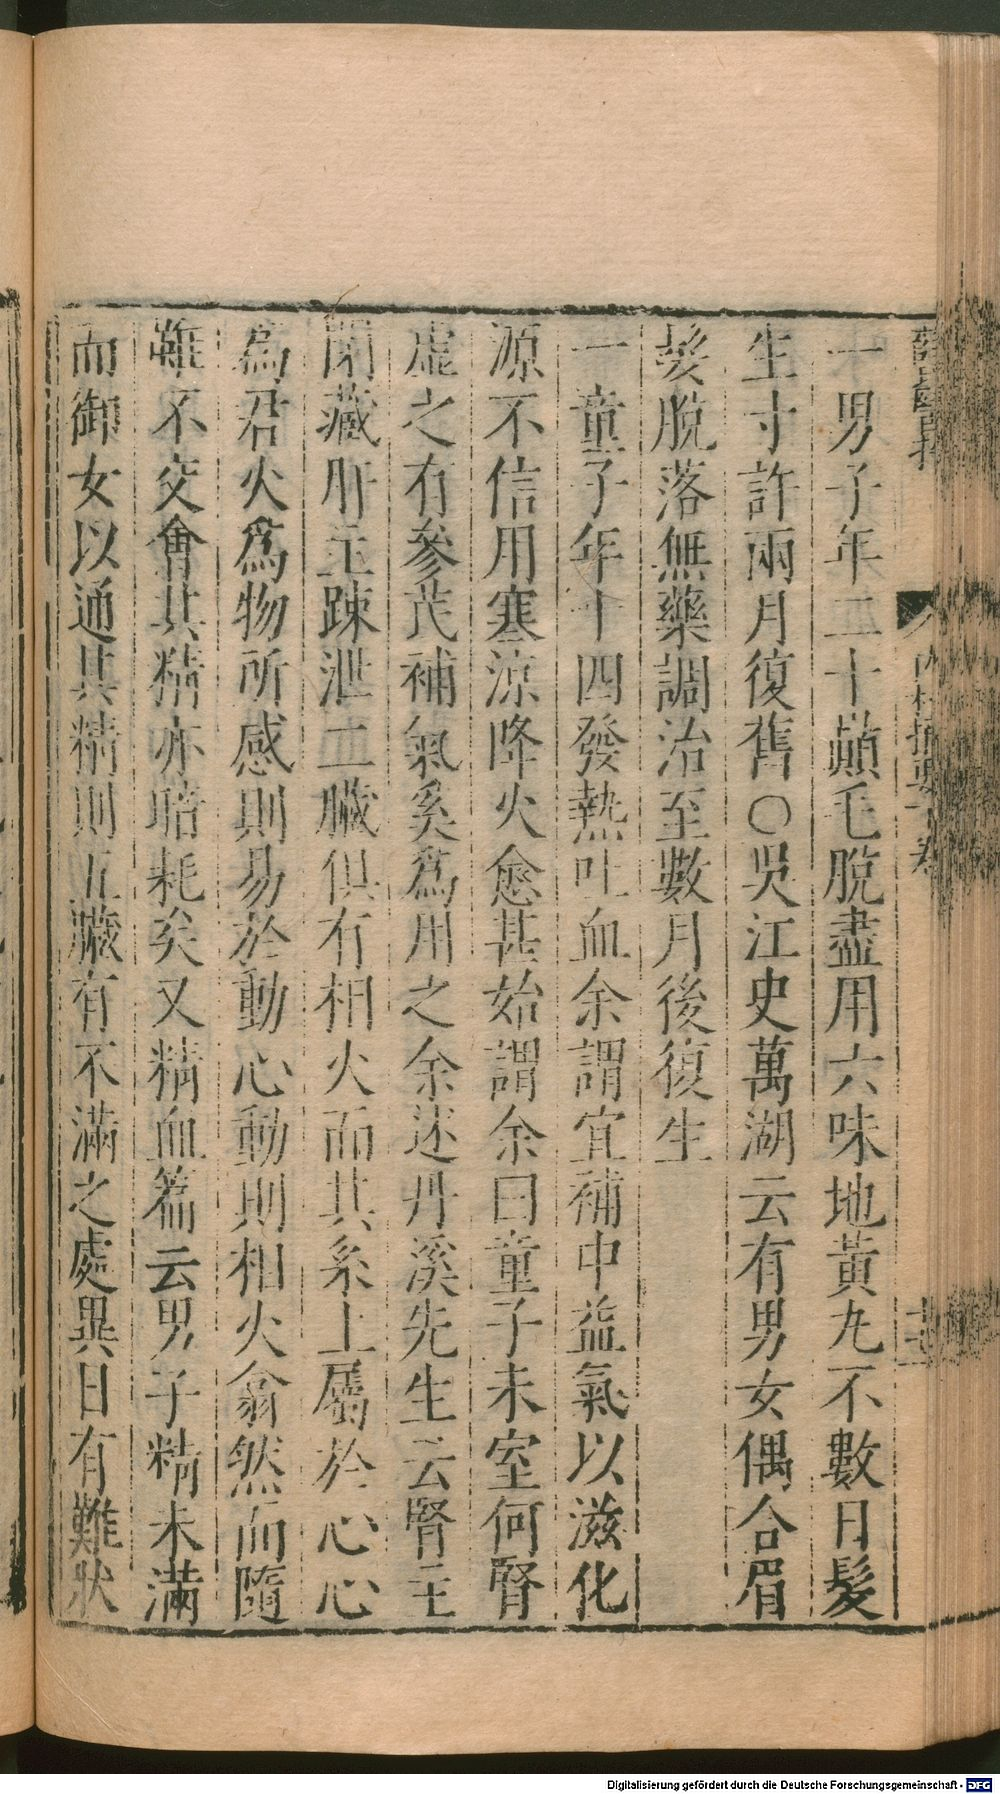 一男子年二十顛毛脫盡用六味地黃丸不數日髮
生寸許兩月復舊○吳江史萬湖云有男女偶合眉
髮脫落無藥調治至數月後復生
一童子年十四發熱吐血余謂宜補中益氣以滋化
源不信用寒涼降火愈甚始謂余曰童子未室何腎
虛之有參芪補氣奚爲用之余述丹溪先生云腎主
閉藏肝主踈泄二臟俱有相火而其系上屬於心心
爲君火爲物所感則易於動心動則相火翕然而隨
雖不交會其精亦暗耗矣又精血篇云男子精未滿
而御女以通其精則五臟有不滿之處異日有難狀
內科摘要下卷
Digitalisierung gefördert durch die Deutsche Forschungsgemeinschaft - DFG